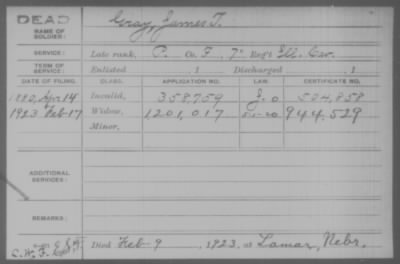 DEAD
NAME OF SOLDIER:
Gray, James T.
SERVICE:
Late rank, P. Co. F, 7" Reg't Ill. Cav.
TERM OF SERVICE:
Enlisted , 1 Discharged , 1
DATE OF FILING. CLASS. APPLICATION NO. LAW. CERTIFICATE NO.
1880, Apr 14 Invalid, 358,759 524,858
1923 Feb 17 Widow, 1201,017 944,529
Minor,
ADDITIONAL SERVICES:
REMARKS:
Died Feb 9, 1923, at Lamar, Nebr.